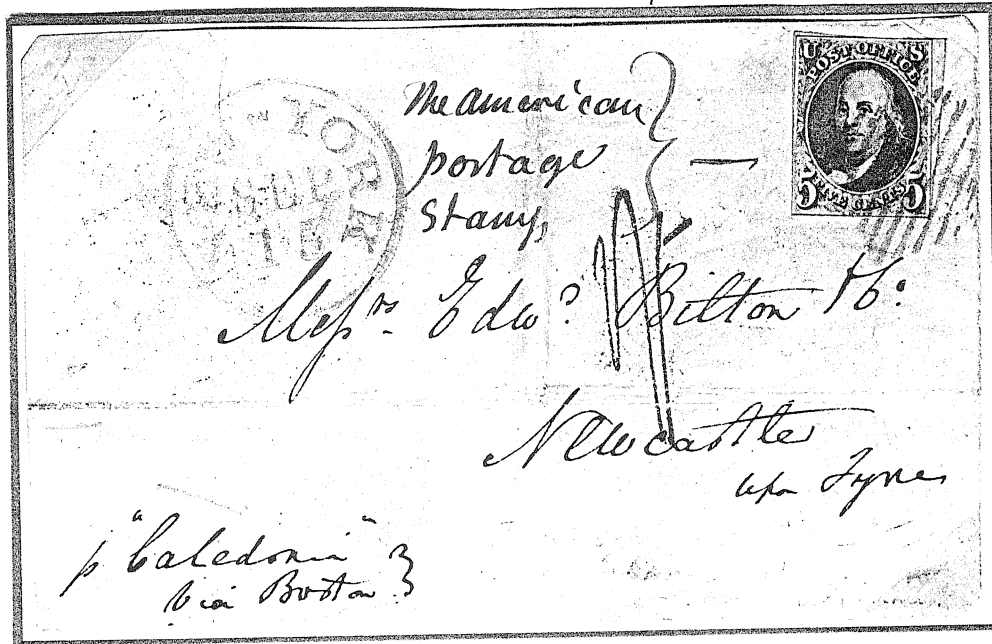 U S
POST OFFICE
FIVE CENTS
5 5
YORK
15
The American
postage
Stamp,
Messrs. Edwd. Bilton & Co:
Newcastle
upon Tyne
p "Caledonia"
via Boston